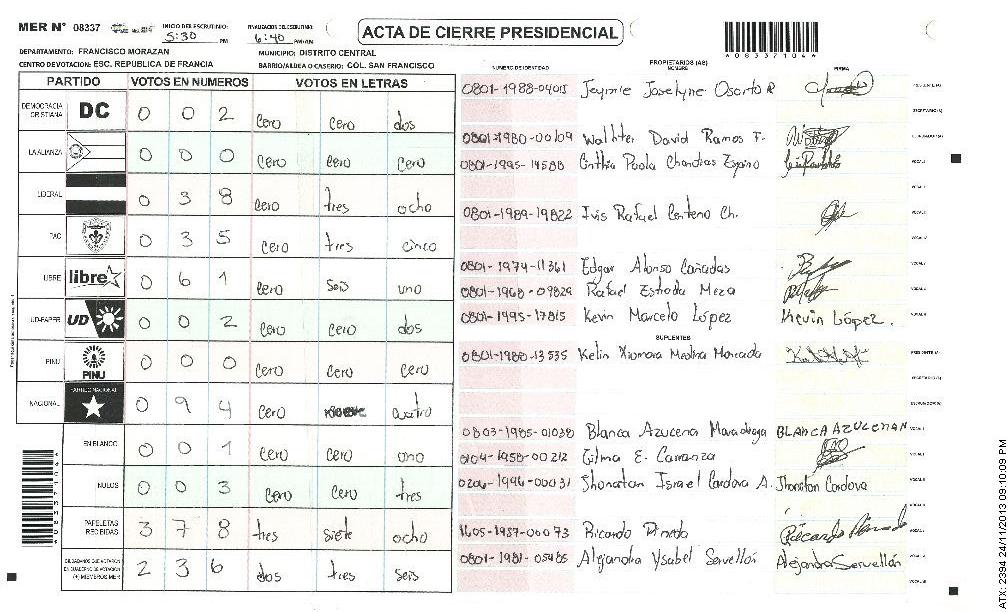 MER N° 08337 INICIO DEL ESCRUTINIO: 5:30 PM FINALIZACION DEL ESCRUTINIO: 6:40 PM/AM
ACTA DE CIERRE PRESIDENCIAL
*083371044*
DEPARTAMENTO: FRANCISCO MORAZAN MUNICIPIO: DISTRITO CENTRAL
CENTRO DE VOTACION: ESC. REPUBLICA DE FRANCIA BARRIO/ALDEA O CASERIO: COL. SAN FRANCISCO
PARTIDO VOTOS EN NUMEROS VOTOS EN LETRAS
DEMOCRACIA CRISTIANA DC 0 0 2 cero cero dos
LA ALIANZA 0 0 0 cero cero cero
LIBERAL 0 3 8 cero tres ocho
PAC 0 3 5 cero tres cinco
LIBRE libre 0 6 1 cero seis uno
UD-FAPER UD 0 0 2 cero cero dos
PINU PINU 0 0 0 cero cero cero
NACIONAL PARTIDO NACIONAL 0 9 4 cero nueve cuatro
EN BLANCO 0 0 1 cero cero uno
NULOS 0 0 3 cero cero tres
PAPELETAS RECIBIDAS 3 7 8 tres siete ocho
CIUDADANOS QUE VOTARON EN CUADERNO DE VOTACION (+) MIEMBROS MER 2 3 6 dos tres seis
NUMERO DE IDENTIDAD PROPIETARIOS (AS) NOMBRE FIRMA
0801-1988-04015 Jeymie Joselyne Osorto R PRESIDENTE (A)
SECRETARIO (A)
0801-1980-00109 Walhter David Ramos F. ESCRUTADOR (A)
0801-1995-14588 Cinthia Paola Chandias Espino VOCAL I
VOCAL II
0801-1989-19822 Ivis Rafael Centeno Ch. VOCAL III
VOCAL IV
0801-1974-11361 Edgar Alonso Cañadas VOCAL V
0801-1968-09829 Rafael Estrada Meza
0801-1995-17815 Kevin Marcelo López Kevin López.
SUPLENTES
0801-1980-13535 Kelin Xiomara Medina Moncada PRESIDENTE (A)
SECRETARIO (A)
ESCRUTADOR (A)
0803-1985-01038 Blanca Azucena Maradiaga BLANCA AZUCENA M
0104-1958-00212 Gilma E. Carranza
0206-1996-00031 Jhonatan Israel Cordova A. Jhonatan Cordova
1605-1987-00073 Ricardo Pineda Ricardo Pineda
0801-1981-05485 Alejandra Ysabel Servellón Alejandra Servellón
*083371044*
ATX: 2394 24/11/2013 09:10:09 PM